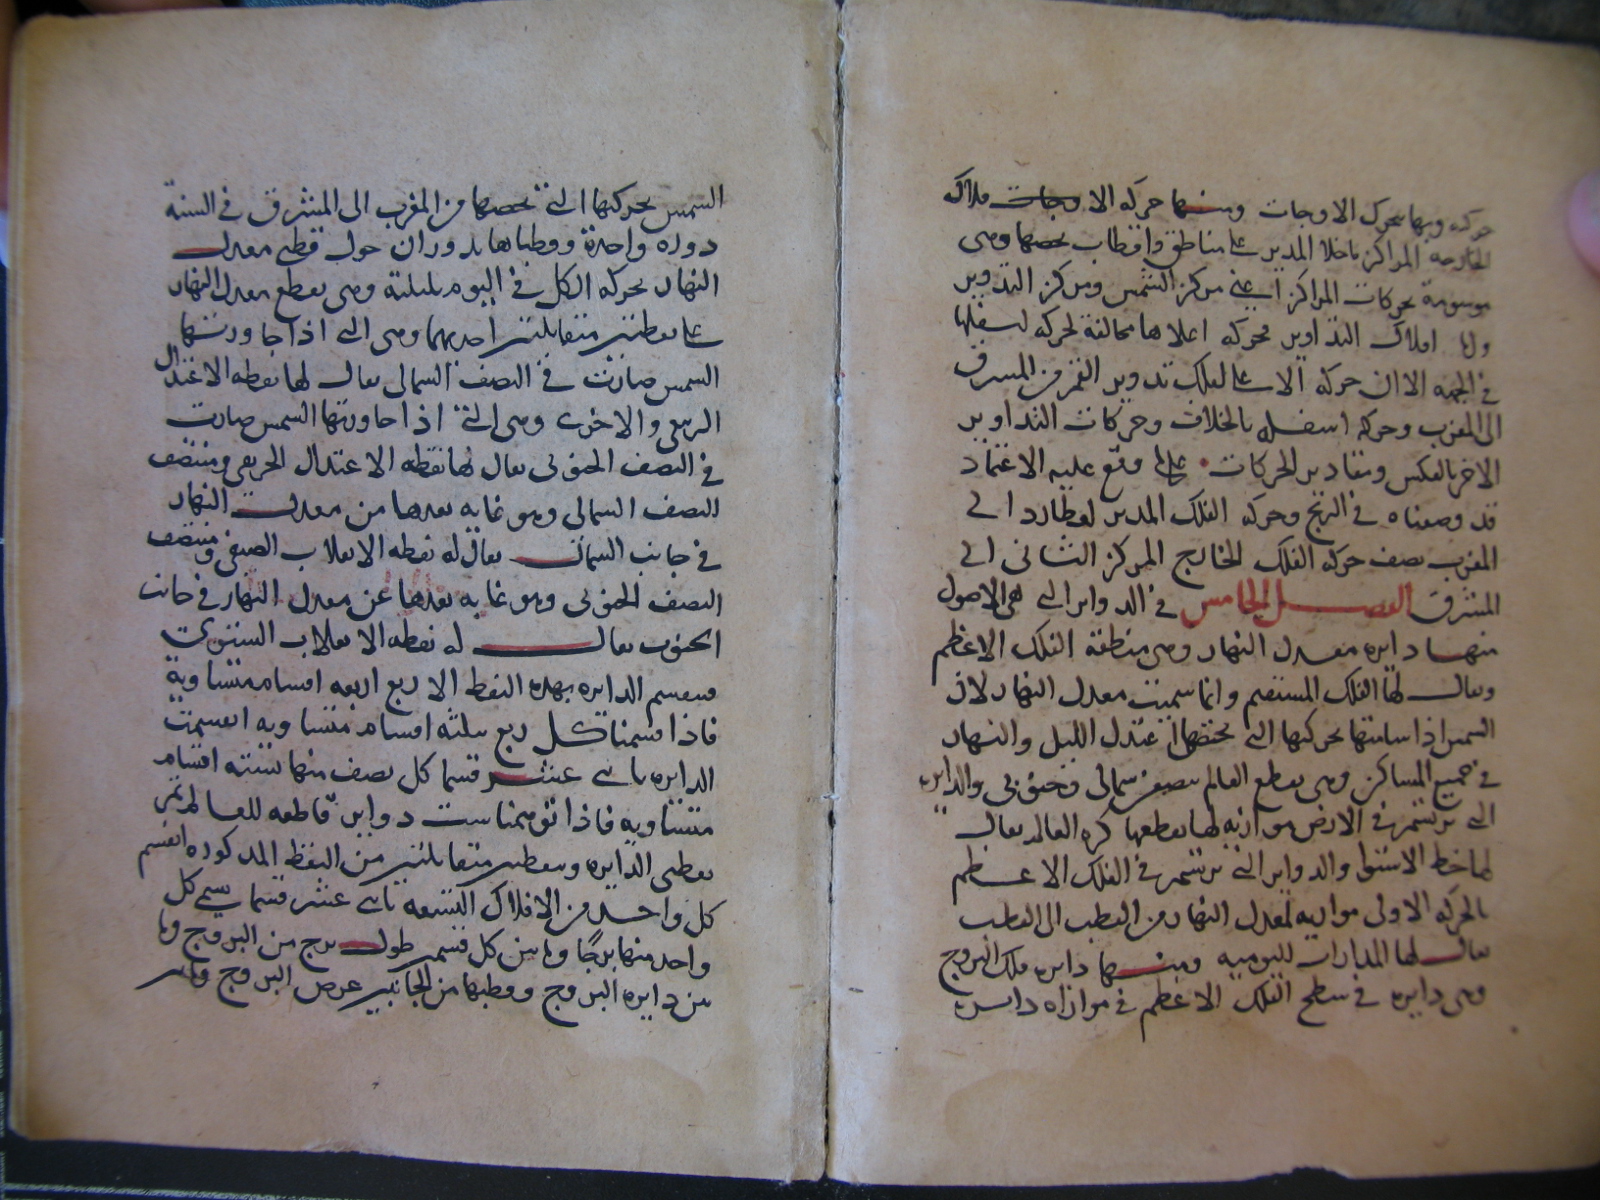 حركه وبها يتحرك الاوجات ومنها حركه الاوجات فلاكه
الخارجه المراكز ما خلا المدير على مناطق واقطاب تخصها وهى
موسومة بحركات المراكز اعنى مركز الشمس ومركز التدوير
افلاك التداوير فحركه اعلاها مخالفة لحركه اسفلها
فى الجهه الا ان حركه الاعلى لفلك تدوير القمر من المشرق
الى المغرب وحركه اسفله بالخلاف وحركات التداوير
الاخر بالعكس ومقادير الحركات على ما وقع عليه الاعتماد
قد وضعناه فى الزيج وحركه الفلك المدير لعطارد الى
المغرب نصف حركه الفلك الخارج المركز الثانى الى
المشرق الفصل الخامس فى الدواير التى هى الاصول
منها دايره معدل النهار وهى منطقة الفلك الاعظم
ويقال لها الفلك المستقيم وانما سميت معدل النهار لان
الشمس اذا سامتتها بحركتها التى تختصها اعتدل الليل والنهار
فى جميع المساكن وهى تقطع العالم بنصفين شمالى وجنوبى والدايره
التى ترتسم فى الارض موازيه لها بقطعها كره العالم يقال
لها خط الاستوا والدواير التى ترتسم فى الفلك الاعظم
بالحركه الاولى موازيه لمعدل النهار من القطب الى القطب
يقال لها المدارات اليوميه ومنها دايره فلك البروج
وهى دايره فى سطح الفلك الاعظم فى موازاه دايره
الشمس بحركتها التى تخصها من المغرب الى المشرق فى السنة
دوره واحدة وقطباها يدوران حول قطبى معدل
النهار بحركه الكل فى اليوم بليلته وهى تقطع معدل النهار
على نقطتين متقابلتين احديهما وهى التى اذا جاورتها
الشمس صارت فى النصف الشمالى يقال لها نقطه الاعتدال
الربيعى والاخرى وهى التى اذا جاورتها الشمس صارت
فى النصف الجنوبى يقال لها نقطه الاعتدال الخريفى ومنتصف
النصف الشمالى وهو غايه بعدها من معدل النهار
فى جانب الشمال يقال له نقطه الانقلاب الصيفى ومنتصف
النصف الجنوبى وهو غايه بعدها عن معدل النهار فى جانب
الجنوب يقال له نقطه الانقلاب الشتوى
فينقسم الدايره بهذه النقط الاربع اربعه اقسام متساوية
فاذا قسمنا كل ربع بثلثه اقسام متساويه انقسمت
الدايره باثنى عشر قسما كل نصف منها بستته اقسام
متساويه فاذا توهمنا ست دواير قاطعه للعالم تمر
بقطبى الدايره وبنقطتين متقابلتين من النقط المذكوره انقسم
كل واحد من الافلاك التسعه باثنى عشر قسما يسمى كل
واحد منها برجا وما بين كل قسمين طول برج من البروج وما
بين دايره البروج وقطبها من الجانبين عرض البروج وما بين